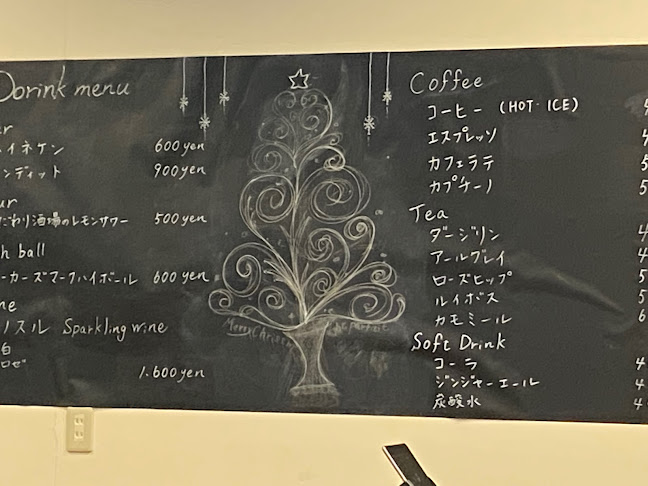 Dorink menu
ur
イネケン 600yen
ンディット 900yen
ur
だわり酒場のレモンサワー 500yen
h ball
ーカーズマークハイボール 600yen
ne
ノスル Sparkling wine
白
ロゼ 1.600yen
Merry Christ
Coffee
コーヒー (HOT・ICE) 4
エスプレッソ 4
カフェラテ 5
カプチーノ 5
Tea
ダージリン 4
アールグレイ 4
ローズヒップ 5
ルイボス 5
カモミール 6
Soft Drink
コーラ 4
ジンジャーエール 4
炭酸水 4